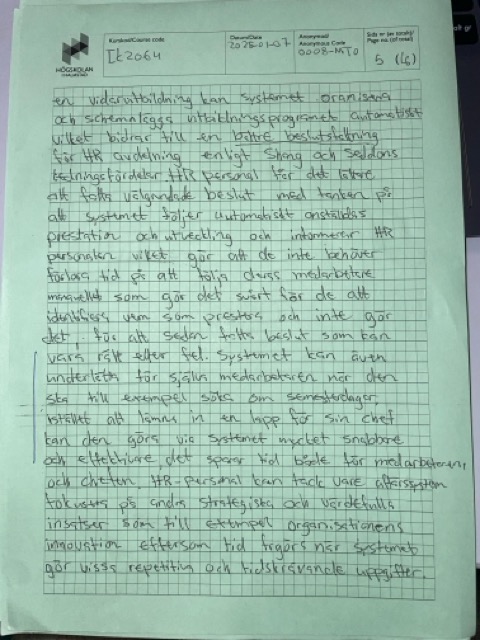 HÖGSKOLAN
I HALMSTAD
Kurskod/Course code
IK2064
Datum/Date
2025-01-07
Anonymkod/
Anonymous Code
0008-MTO
Sida nr (av totalt)/
Page no. (of total)
5 (6)
en vidarutbildning kan systemet oranisera
och schemalägga utbildningsprogramet automatiskt
vilket bidrar till en bättre beslutsfattning
för HR avdelning enligt Shang och Seddons
ledningsfördelar. HR personal får det lättare
att fatta välgrundade beslut med tanken på
att systemet följer automatiskt anställdas
prestation och utveckling och informerar HR
personalen vilket gör att de inte behöver
förlora tid på att följa deras medarbetare
manuellt som gör det svårt för de att
identifiera vem som prestera och inte gör
det, för att sedan fatta beslut som kan
vara rätt eller fel. Systemet kan även
underlätta för själva medarbetaren när den
ska till exempel söka om semesterdagar,
istället att lämna in en lapp för sin chef
kan den göra via systemet mycket snabbare
och effektivare, det sparar tid både för medarbetaren,
och chefen. HR-personal kan tack vare affärssystem
fokusera på andra strategiska och värdefulla
insatser som till exempel organisationens
innovation eftersom tid frigörs när systemet
gör vissa repetitiva och tidskrävande uppgifter.